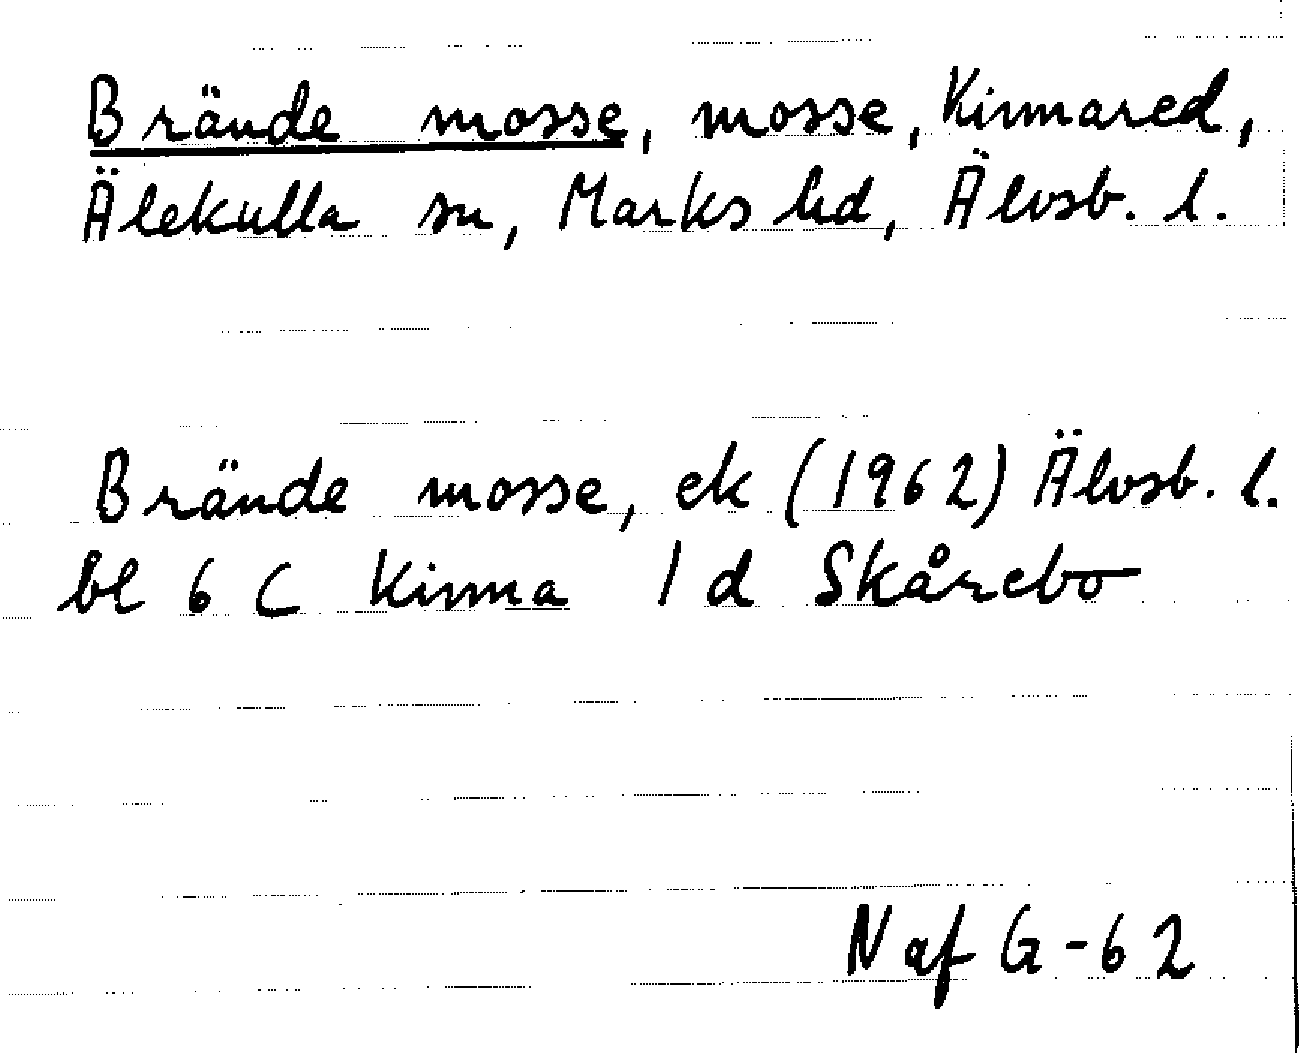 Brände mosse, mosse, Kinnared,
Älekulla sn, Marks hd, Älvsb. l.
Brände mosse, ek (1962) Älvsb. l.
bl 6 C Kinna 1 d Skårebo
Naf G-62